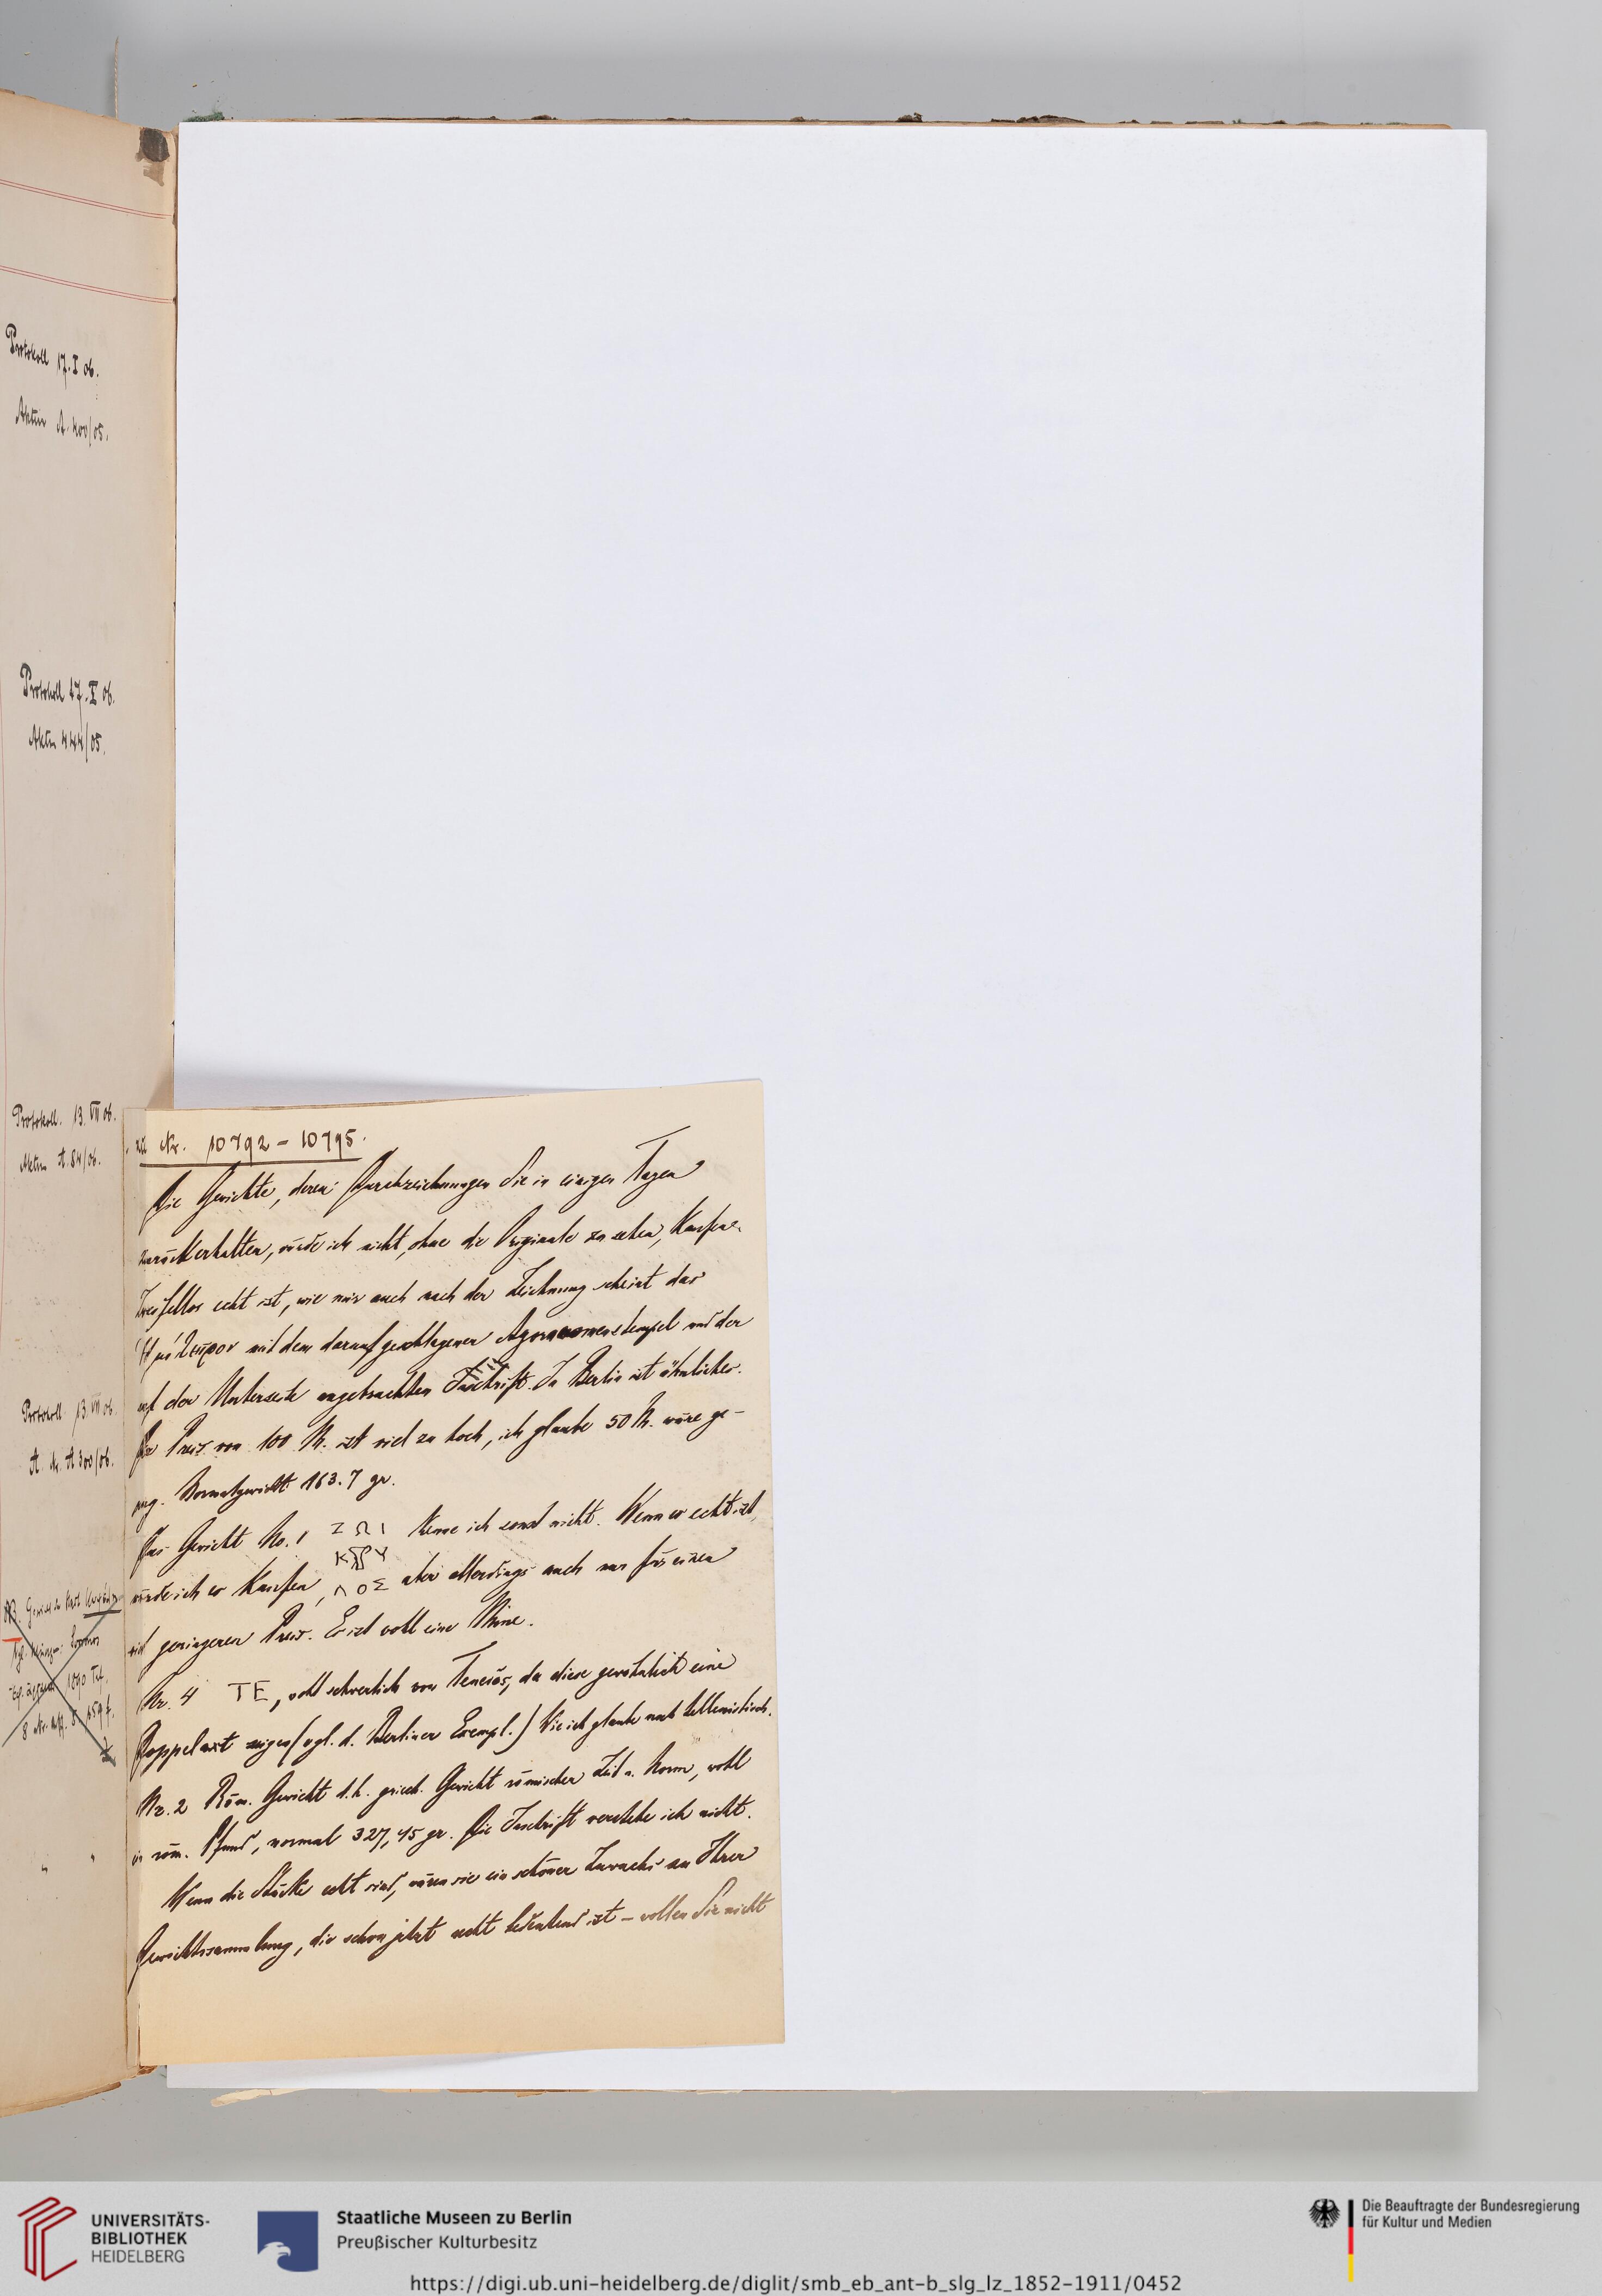 Protokoll 17.I 06.
Akten A. 400/05.
Protokoll 17.X 06.
Akten 444/05.
Protokoll. 13. VII 06.
Akten A. 84/06.
Protokoll 13. VII 06.
A. Nr. A 300/06.
zu Nr. 10792 - 10795.
Die Gewichte, deren Durchzeichnungen Sie in einigen Tagen
zurückerhalten, würde ich nicht, ohne die Originale zu sehen, kaufen.
Zweifellos echt ist, wie mir auch nach der Zeichnung scheint das
mit dem darauf geschlagenen Agoranomenstempel und der
auf der Unterseite angebrachten Inschrift. In Berlin ist ähnliches.
Der Preis von 100 M. ist viel zu hoch, ich glaube 50 M. wäre ge-
nug. Normalgewicht 163.7 gr.
Das Gewicht No. 1 ΖΩΙ kenne ich sonst nicht. Wenn es echt ist,
würde ich es kaufen, ΛΟΣ aber allerdings auch nur für einen
viel geringeren Preis. Es ist wohl eine Mine.
Nr. 4 TE, wohl schwerlich von Tenedos, da diese gewöhnlich eine
Doppelaxt zeigen (vgl. d. Berliner Exempl.) Wie ich glaube auch hellenistisch.
Nr. 2 Röm. Gewicht d.h. griech. Gewicht römischer Zeit u. Norm, wohl
ein röm. Pfund, normal 327,45 gr. Die Inschrift verstehe ich nicht.
Wenn die Stücke echt sind, wären sie ein schöner Zuwachs zu Ihrer
Gewichtssammlung, die schon jetzt recht bedeutend ist - wollen Sie nicht
UNIVERSITÄTS-
BIBLIOTHEK
HEIDELBERG
Staatliche Museen zu Berlin
Preußischer Kulturbesitz
Die Beauftragte der Bundesregierung
für Kultur und Medien
https://digi.ub.uni-heidelberg.de/diglit/smb_eb_ant-b_slg_lz_1852-1911/0452